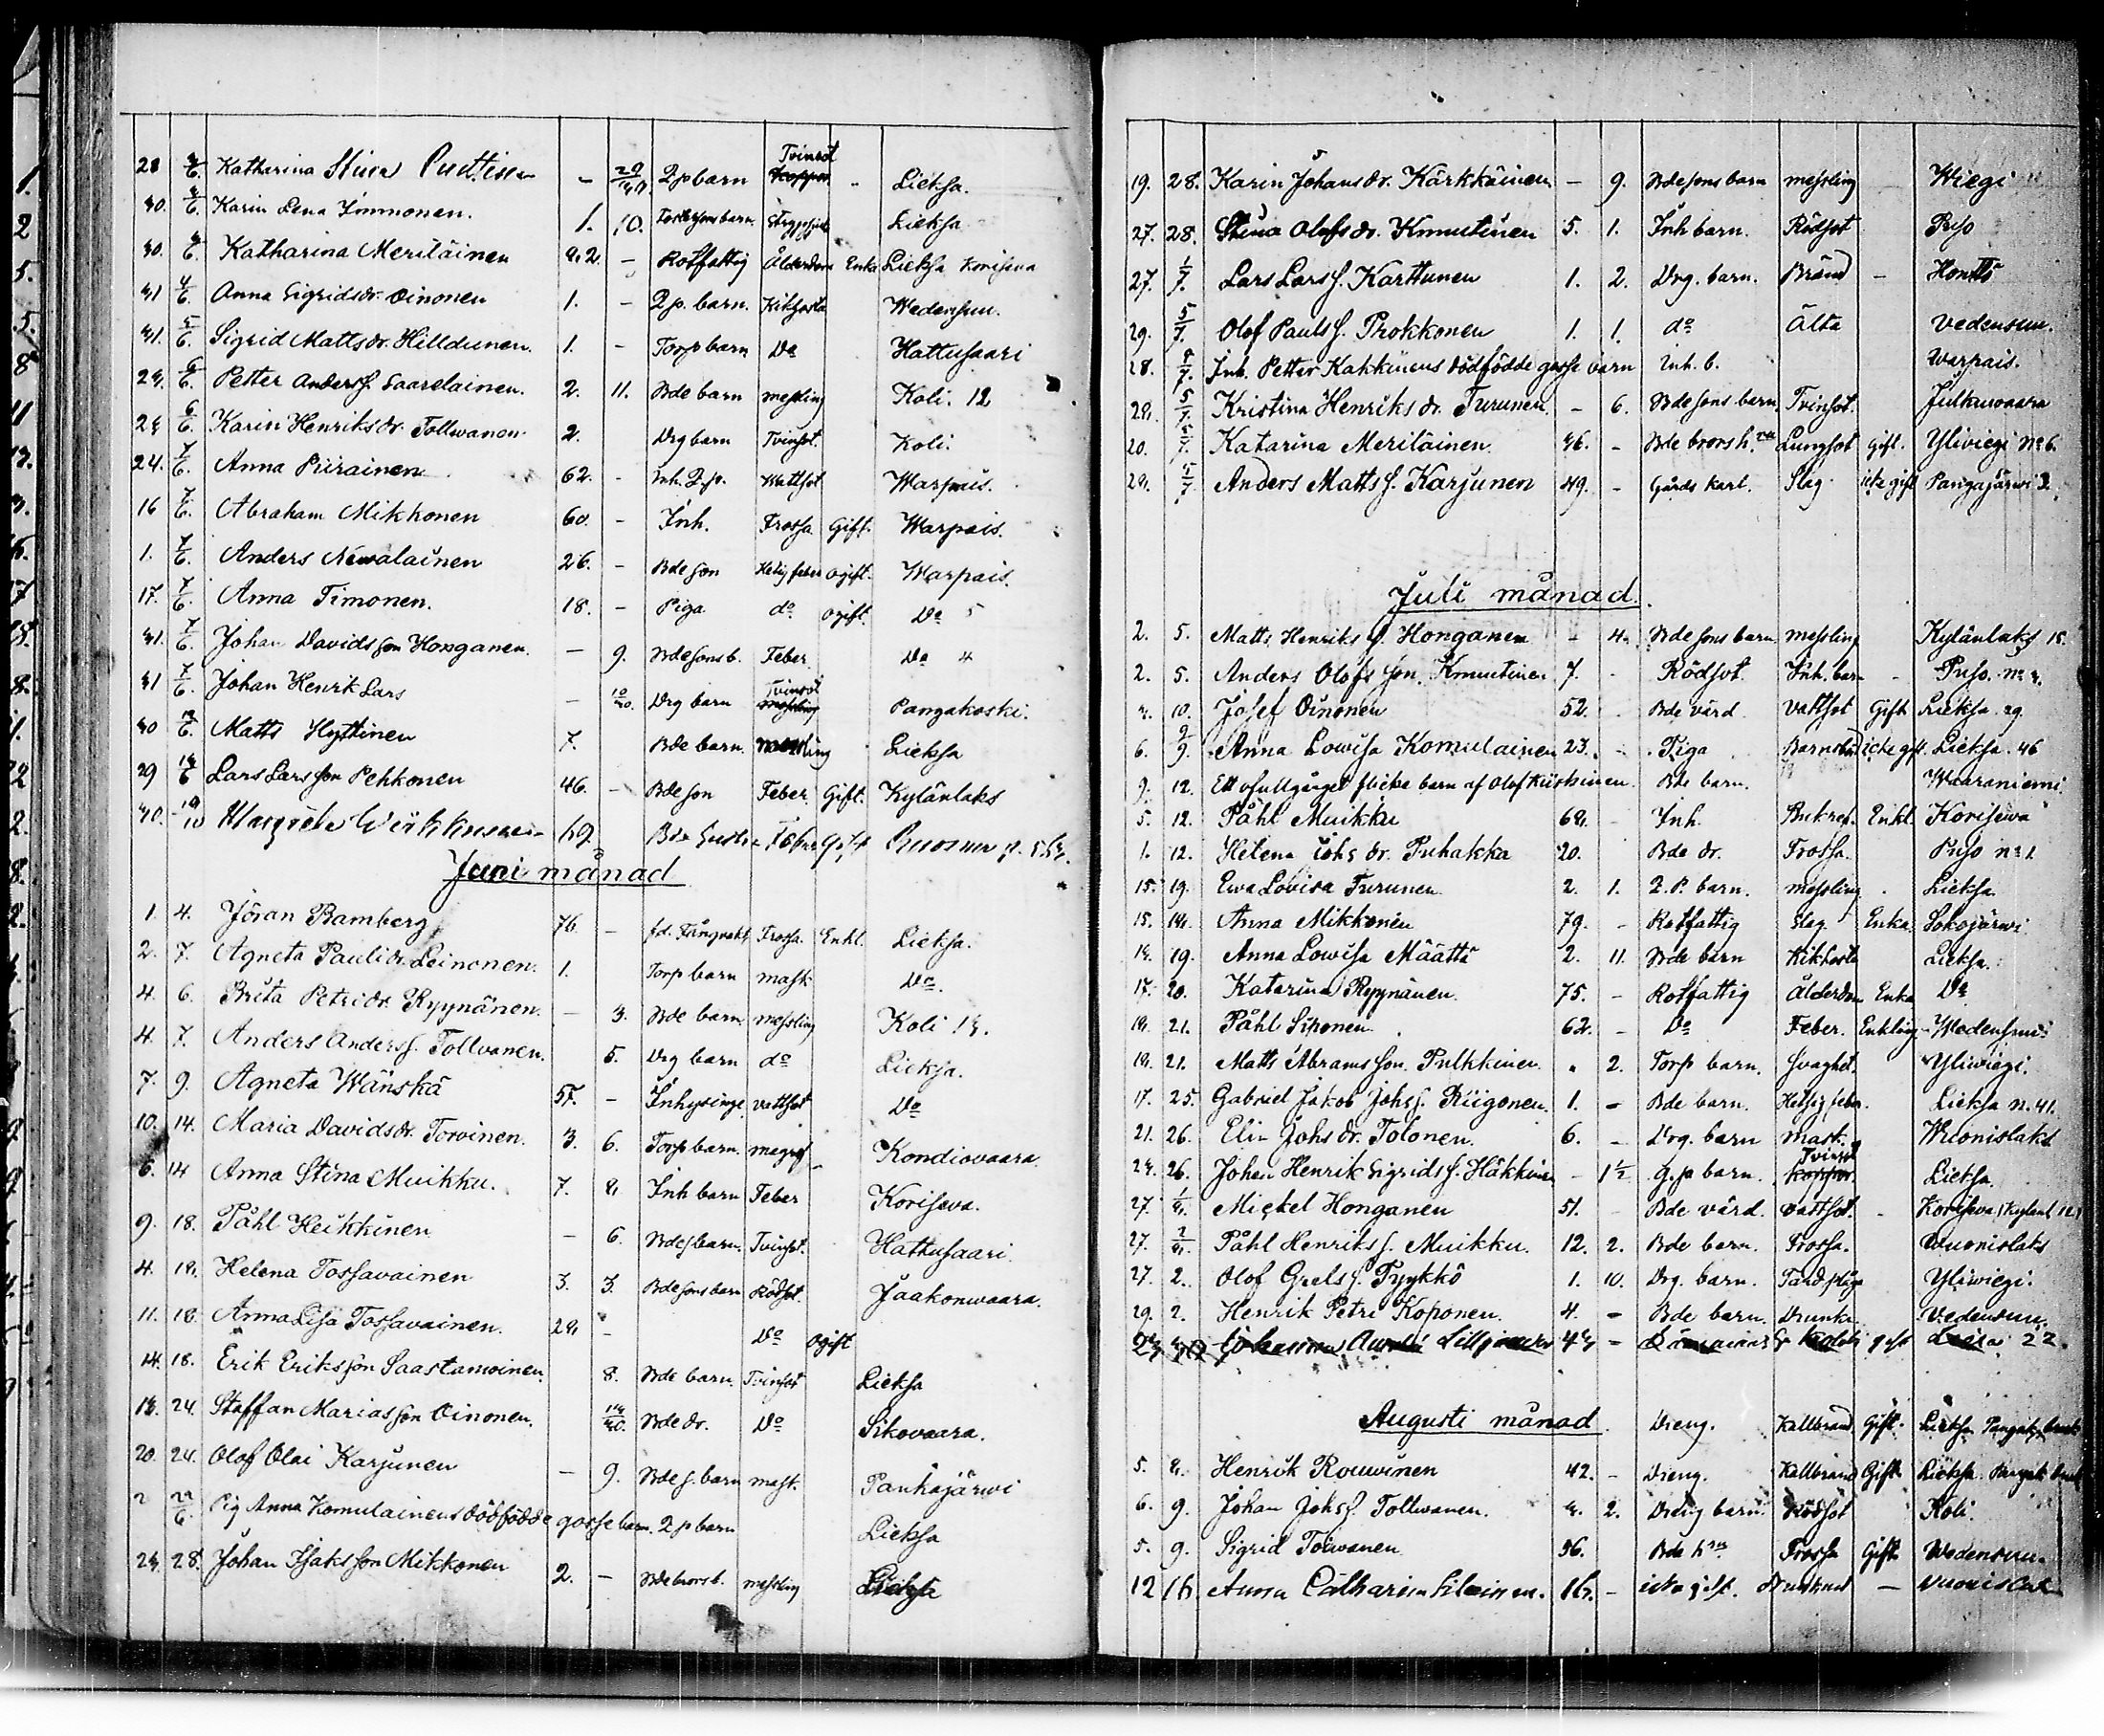 28 4/6. Katharina Stina Puttinen - 29/30 2p barn Tvinsot - Lieksa.
30. 4/6. Karin Lena Immonen. 1. 10. barn Strypsjuk Lieksa
30. 4/6. Katharina Meriläinen 82 - Rotfattig Ålderdom Enka Lieksa Koriseva
31 4/6. Anna Sigridsdr. Oinonen 1. - 2p. barn. Kikhosta Wedensuu.
31. 5/6. Sigrid Mattsdr. Hilldunen. 1. - Torp barn Do Hattusaari
28. 6/6. Petter Anders s. Saarelainen. 2. 11. Bde barn messling Koli. 12
28 6/6. Karin Henriksdr. Tollwanen 2. Drg barn Tvinsot. Koli.
24. 7/6. Anna Piirainen 62. - Inh. 2p. Wattsot Warpais.
16 7/6. Abraham Mikkonen 60. - Inh. Frossa Gift. Warpais.
1. 7/6. Anders Newalainen 26. - Bde son Hetsig feber ogift. Warpais.
17. 7/6. Anna Timonen. 18. - Piga do ogift. Do 5
31. 7/6. Johan Davidsson Honganen. - 9. Bdesons b. Feber Do 4
31 7/6. Johan Henrik Lars - 10/30. Drg barn Tvinsot Pangakoski.
30 Matts Hyttinen 7. Bde barn. messling Lieksa
29 14/6 Lars Larsson Pehkonen 46. - Bde son Feber. Gift. Kylänlaks
30. Margreta 69. Bde Feber Gift
Juni månad
1. 4. Jöran Bamberg 76 - fd. Fångvakt Frossa. Enkl. Lieksa.
2. 7. Agneta Paulidr. Leinonen. 1. Torp barn mask Do.
4. 6. Brita Petridr. Ryynänen. - 3. Bde barn messling Koli 18.
4. 7. Anders Anders s. Tollvanen. 5. Drg barn do Lieksa.
7. 9. Agneta Wänskä 57. - Inhysinge vattsot Do
10. 14. Maria Davidsdr. Torvinen. 3. 6. Torp barn. Kondiovaara.
6. 14 Anna Stina Muikku. 7. 8 Inh barn Feber Koriseva.
9. 18. Påhl Heikkinen - 6. Bde s barn. Tvinsot. Hattusaari
4. 18. Helena Tossavainen 3. 3. Bde sons barn Rödsot. Jaakonwaara.
11. 18. Anna Lisa Tossavainen. 28 - Do ogift
14. 18. Erik Eriksson Saastamoinen. 8. Bde barn. Tvinsot Lieksa
18. 24. Staffan Mariasson Oinonen. 18/30. Bde dr. Do Sikovaara.
20. 24. Olof Olai Karjunen - 9. Bde s. barn mask. Pankajärwi
2 28/6. Pig Anna Komulainens dödfödde gosse barn. 2p barn Lieksa
28 28. Johan Isaksson Mikkonen 2. - Bde brors b. messling Lieksa
19. 28. Karin Johansdr. Kärkkäinen - 9. Bde sons barn messling Wiegi
27. 28. Stina Olofsdr. Knuutinen 5. 1. Inh barn. Rödsot Puso
27. 1/7. Lars Lars s. Karttunen 1. 2. Drg. barn. Bränd - Hontto
29. 5/7. Olof Pauls s. Prokkonen 1. 1. do Älta Vedensuu.
28. 5/7. Inh. Petter Kahkinens dödfödde gosse barn Inh. b. Warpais.
28. 5/7. Kristina Henriksdr. Turunen. - 6. Bde sons barn Tvinsot. Julkuwaara
20. 5/7. Katarina Meriläinen. 36. - Bde brors h. Lungsot Gift. Yliviegi No 6.
28. 5/7. Anders Matts s. Karjunen 49. - Gårds karl. Slag icke gift Pangajärwi 3.
Juli månad.
2. 5. Matts Henriks s. Honganen - 4. Bde sons barn. messling Kylänlaks 15.
2. 5. Anders Olofs son. Knuutinen 7. - Rödsot Inh. barn - Puso. no 4.
4. 10. Josef Oinonen 52. - Bde värd vattsot Gift Lieksa. 29
6. 9/9. Anna Lowisa Komulainen 23. - Piga Barnsbörd icke gift. Lieksa. 46
9. 12. Ett ofullgånget flicke barn af Olof Kiiskinen. Bde barn. Waaraniemi
5. 12. Påhl Muikku 68. - Inh. Enkl. Korisewa
1. 12. Helena Johs dr. Puhakka 20. Bde dr. Frossa. Puso no 1
15. 19. Ewa Lovisa Turunen 2. 1. 2. P. barn. messling. Lieksa.
15. 18. Anna Mikkonen 79. - Rotfattig Slag. Enka Sokojärwi
18. 19. Anna Lowisa Määttä 2. 11. Bde barn Kikhosta Lieksa.
17. 20. Katarina Ryynänen. 75. - Rotfattig Ålderdom Enka Do
18. 21. Påhl Siponen 62. - Do Feber. Enkling Wedensuu
18. 21. Matts Abramsson. Pulkkinen - 2. Torp barn. svaghet. Yliwiegi.
17. 25. Gabriel Jakob Johs s. Piigonen. 1. - Bde barn. Hetsig feber. Lieksa n. 41.
21. 26. Elin Johsdr. Tolonen. 6. - Drg. barn mask. Wuonislaks
28. 26. Johan Henrik Sigrids s. Häkkinen - 1½ q. p barn. Tvinsot Lieksa
27. 1/8. Mickel Honganen 51. - Bde värd. vattsot. - Korisewa
27. 2/8. Påhl Henriks s. Muikku. 12. 2. Bde barn. Frossa. Wuonislaks
27. 2. Olof Grels s. Tyykkö 1. 10. Drg. barn. Tandsläp Yliwiegi.
29. 2. Henrik Petri Koponen. 4. - Bde barn. Drunkn. Vedensuu.
Johanna 22.
Augusti månad Dreng. Kallbrand Gift. Lieksa
5. 8. Henrik Rouwinen 42. - Dreng. Kallbrand Gift Lieksa.
6. 9. Johan Johs s. Tollwanen. 4. 2. Dreng barn. Rödsot Koli.
5. 9. Sigrid Toiwanen 56. Bde h. Frossa Gift Wedensuu.
12 16. Anna Catharina 16. - icke gift. Drunknat - Vuonislax